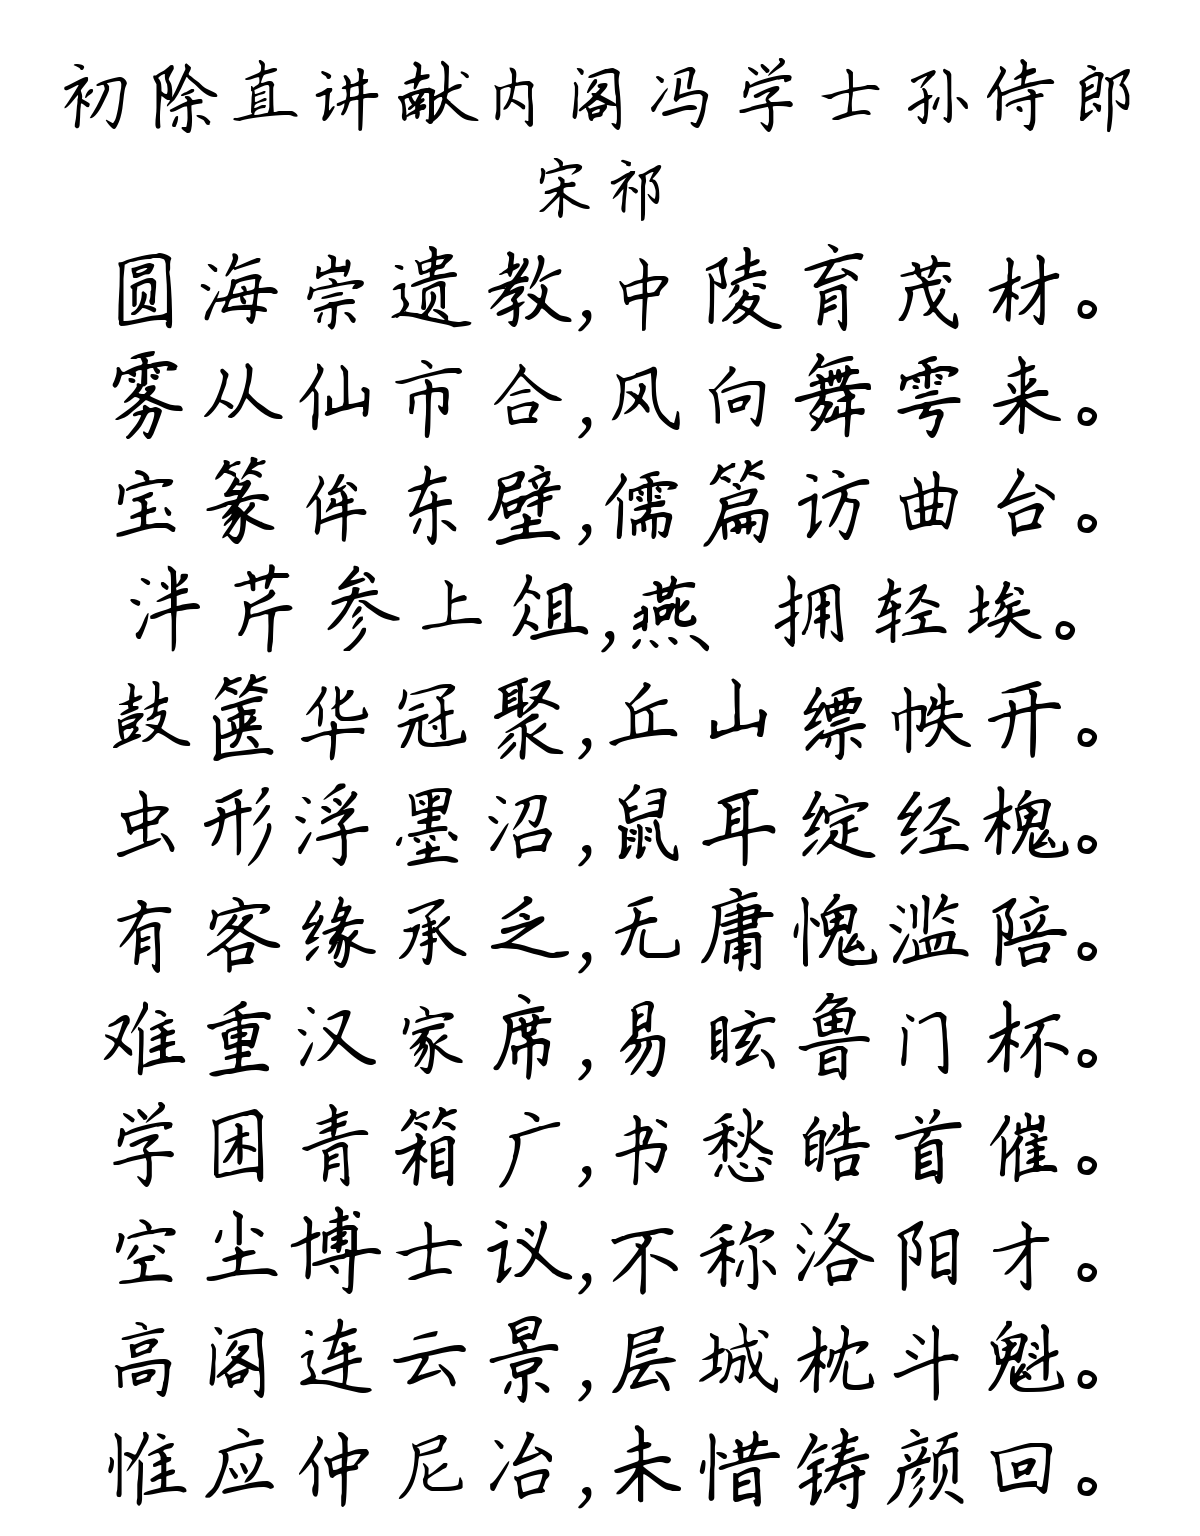 初除直讲献内阁冯学士孙侍郎
宋祁
圆海崇遗教,中陵育茂材。
雾从仙市合,风向舞雩来。
宝篆侔东壁,儒篇访曲台。
泮芹参上俎,燕 拥轻埃。
鼓箧华冠聚,丘山缥帙开。
虫形浮墨沼,鼠耳绽经槐。
有客缘承乏,无庸愧滥陪。
难重汉家席,易眩鲁门杯。
学困青箱广,书愁皓首催。
空尘博士议,不称洛阳才。
高阁连云景,层城枕斗魁。
惟应仲尼冶,未惜铸颜回。